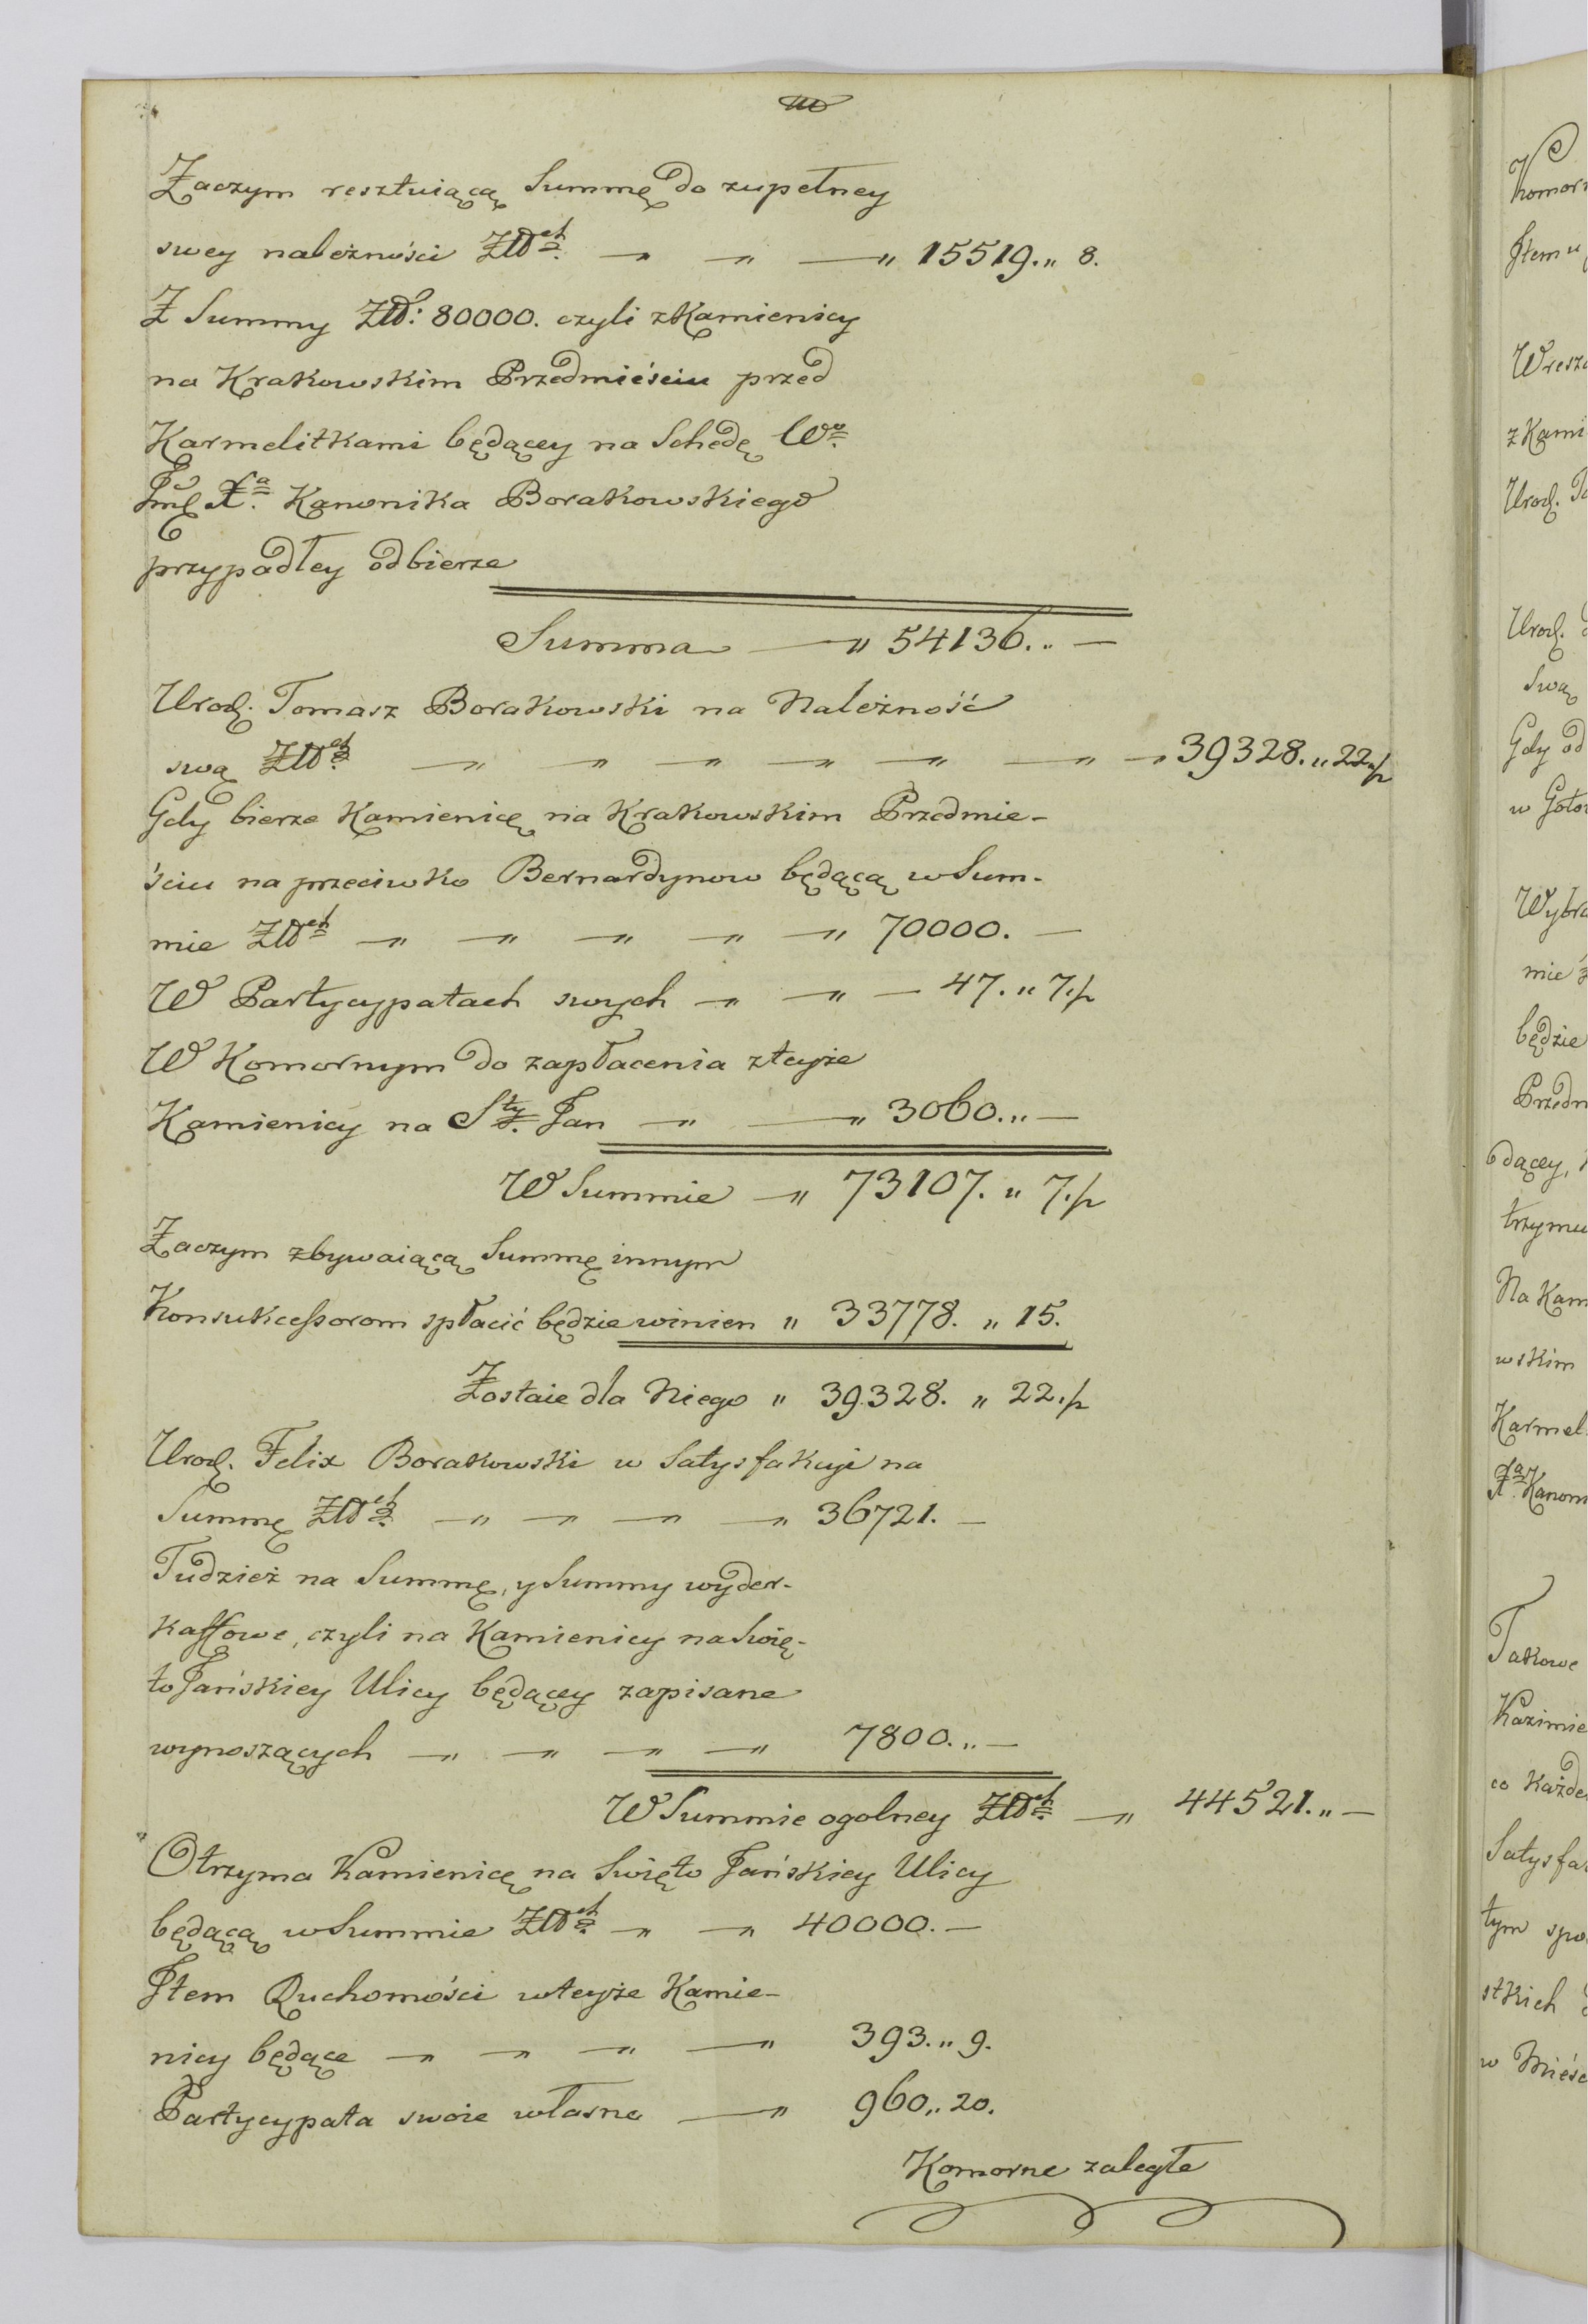 Zaczym resztuiącą Summę do zupełney
swey należności Złłch. — „ — „ — „ 15519. „ 8.
Z Summy Złł: 80000. czyli z Kamienicy
na Krakowskim Przedmieściu przed
Karmelitkami będącey na Schedę Wo.
Jmę Xa. Kanonika Borakowskiego
przypadłey odbierze
Summa — „ 54136. „ —
Urodz. Tomasz Borakowski na Należność
swą Złłch. — „ — „ — „ — „ — „ — „ — „ 39328. „ 22 ./.
Gdy bierze Kamienicę na Krakowskim Przedmie-
ściu na przeciwko Bernardynow będącą w Sum-
mie Złłch — „ — „ — „ — „ — „ 70000. —
W Partycypatach swych — „ — „ — 47. „ 7 ./.
W Komornym do zapłacenia z teyże
Kamienicy na Sty. Jan — „ — „ 3060. „ —
W Summie — „ 73107. „ 7 ./.
Zaczym zbywaiącą Summę innym
Konsukcessorom spłacić będzie winien „ 33778. „ 15.
Zostaie dla Niego „ 39328. „ 22 ./.
Urodz. Felix Borakowski w Satysfakcyi na
Summę Złłch. — „ — „ — „ — „ 36721. —
Tudzież na Summę, y Summy wyder-
kaffowe, czyli na Kamienicy na Świę-
to Jańskiey Ulicy będącey zapisane
wynoszących — „ — „ — „ — „ 7800. „ —
W Summie ogolney Złłch. — „ 44521. „ —
Otrzyma Kamienicę na Święto Jańskiey Ulicy
będącą w Summie Złłch. — „ — „ 40000. —
Item Ruchomości w teyże Kamie-
nicy będące — „ — „ — „ — „ 393. „ 9.
Partycypata swoie własne — „ 960 „ 20.
Komorne zaległe